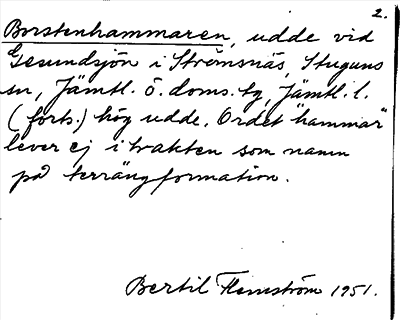 2.
Borstenhammaren, udde vid
Gesundsjön i Strömsnäs, Stuguns
sn, Jämtl. ö. doms. tg, Jämtl. l.
(forts.) hög udde. Ordet "hammar"
lever ej i trakten som namn
på terrängformation.
Bertil Flemström 1951.